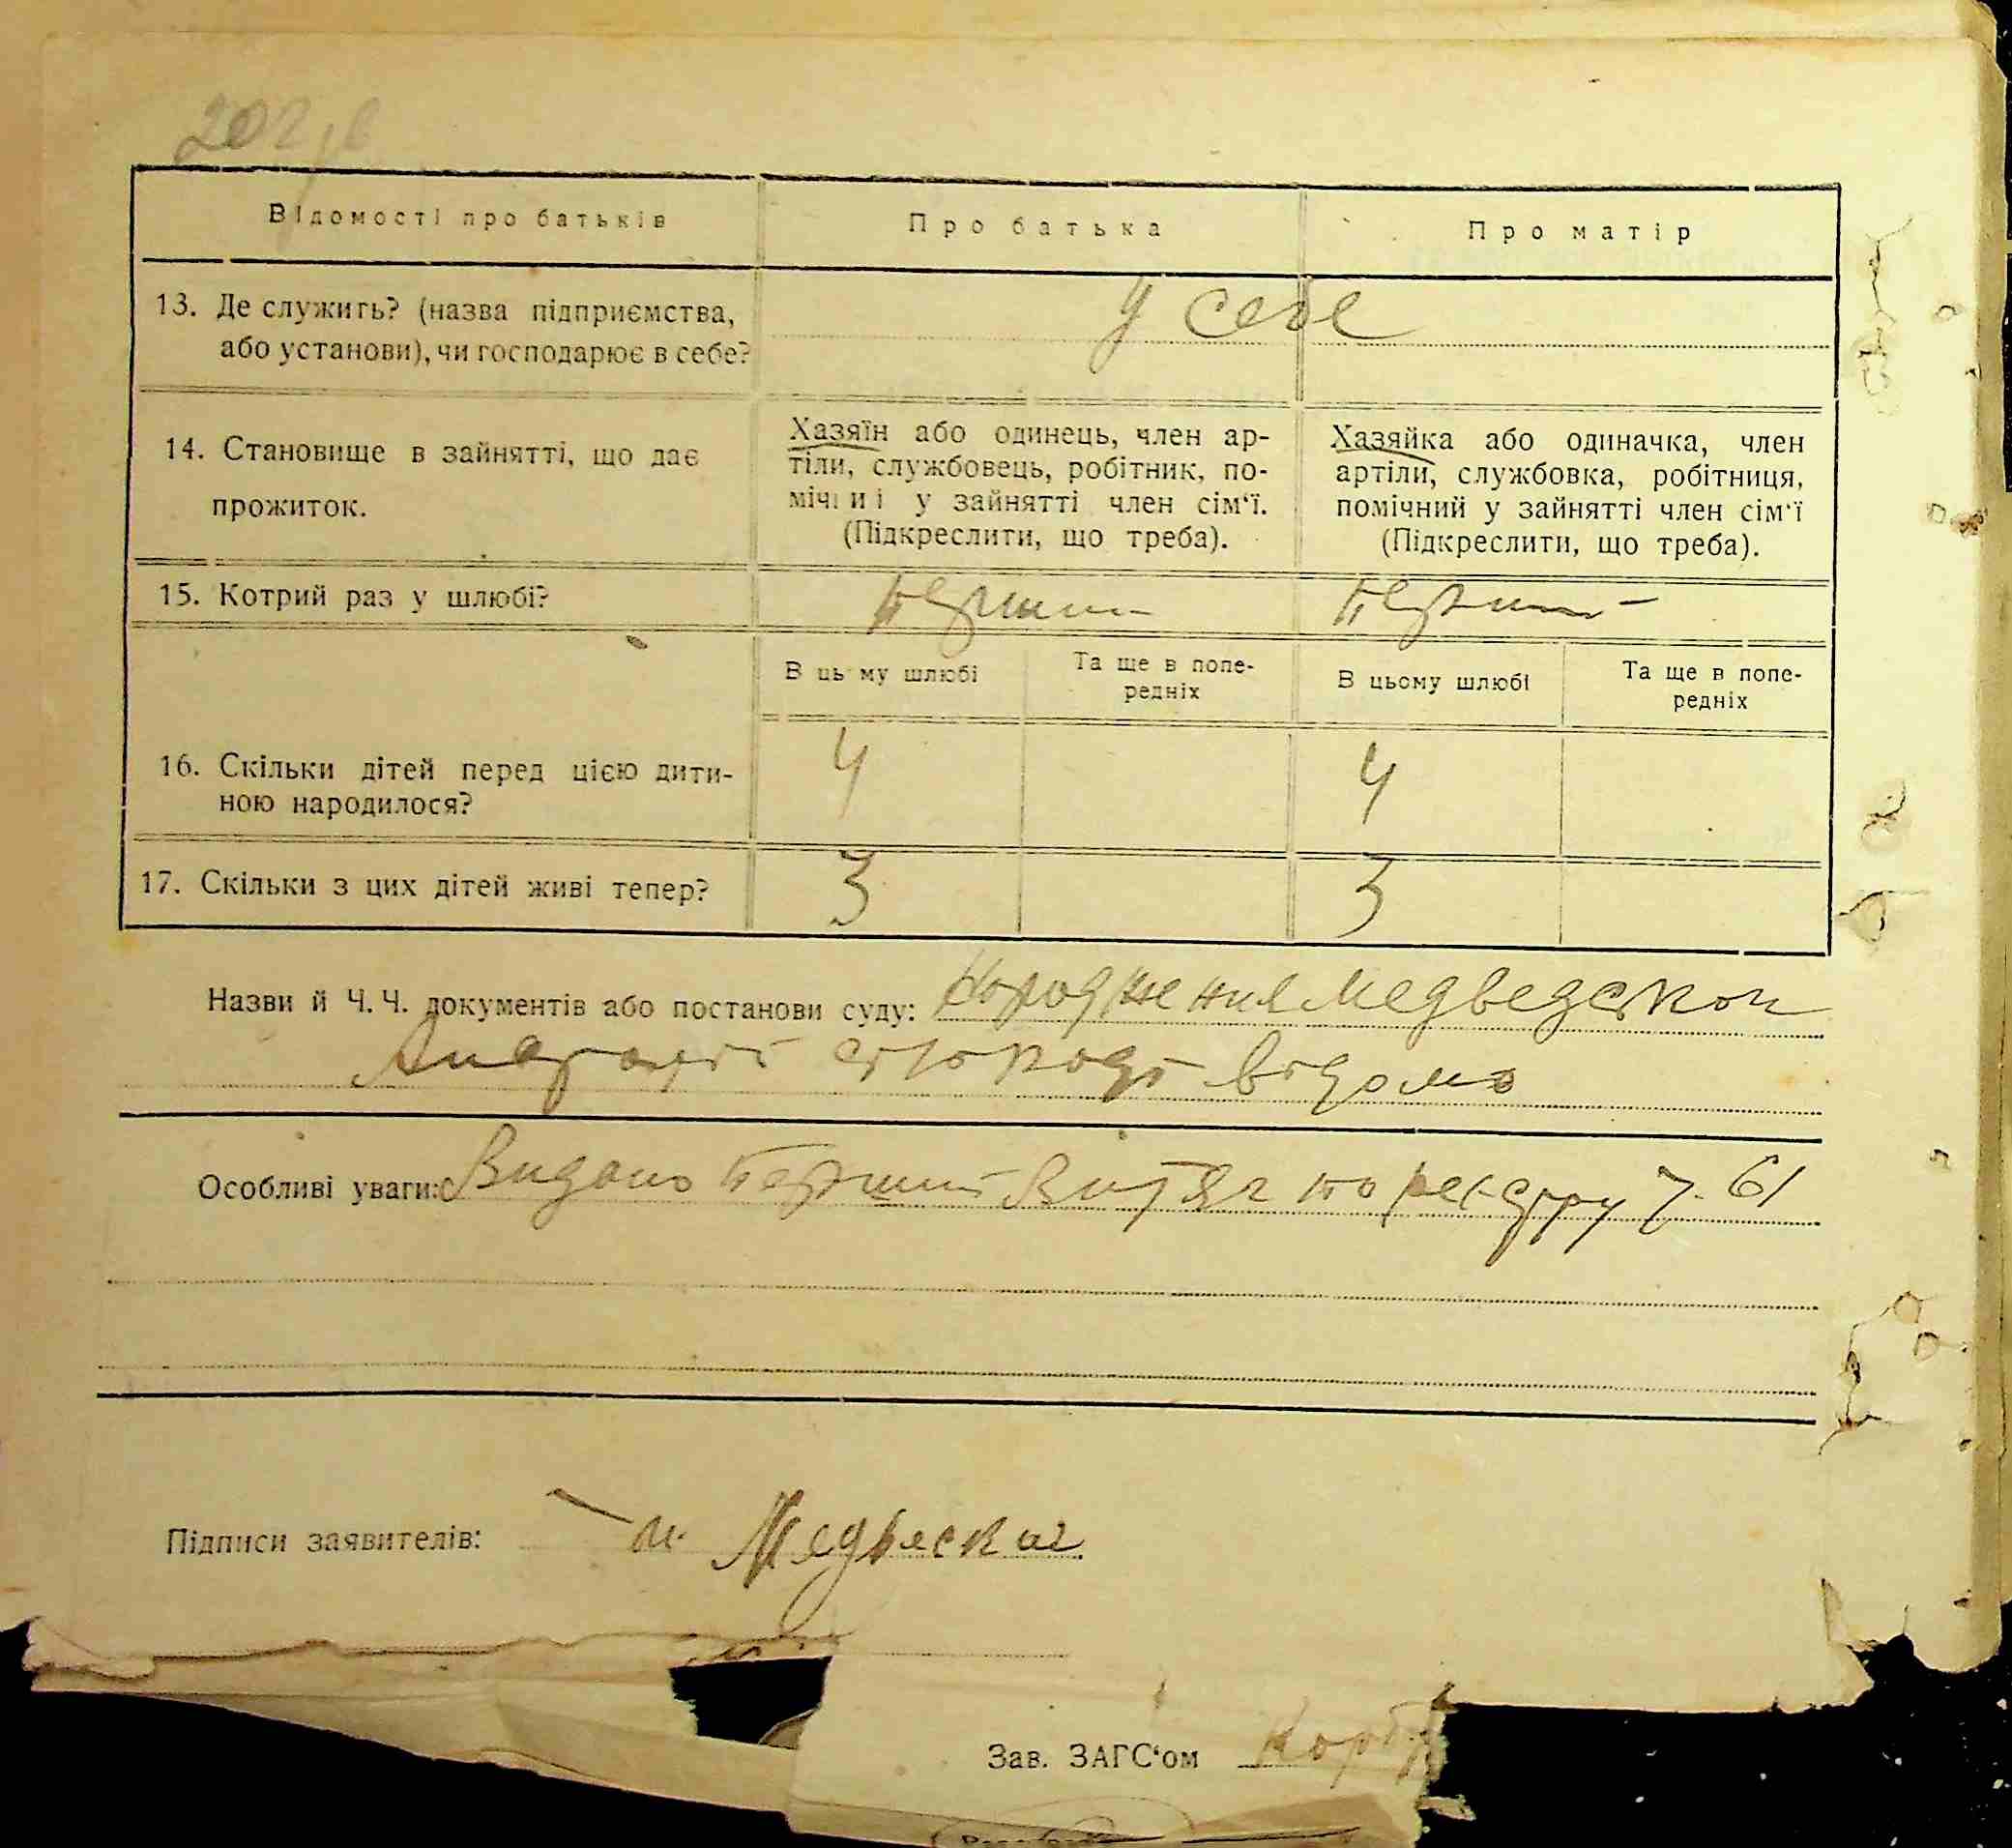 Відомості про батьків
Про батька
Про матір
13. Де служить? (назва підприємства,
або установи), чи господарює в себе?
у себе
14. Становище в зайнятті, що дає
прожиток.
Хазяїн або одинець, член ар-
тіли, службовець, робітник, по-
мічний у зайнятті член сім‘ї.
(Підкреслити, що треба).
Хазяйка або одиначка, член
артіли, службовка, робітниця,
помічний у зайнятті член сім‘ї
(Підкреслити, що треба).
15. Котрий раз у шлюбі?
перший
перший
В цьому шлюбі
Та ще в попе-
редніх
В цьому шлюбі
Та ще в попе-
редніх
16. Скільки дітей перед цією дити-
ною народилося?
4
4
17. Скільки з цих дітей живі тепер?
3
3
Назви й Ч. Ч. документів або постанови суду: народження Медведской
відомо
Особливі уваги: Видано перший витяг по реєстру ч. 61
Підписи заявителів:
Зав. ЗАГС‘ом